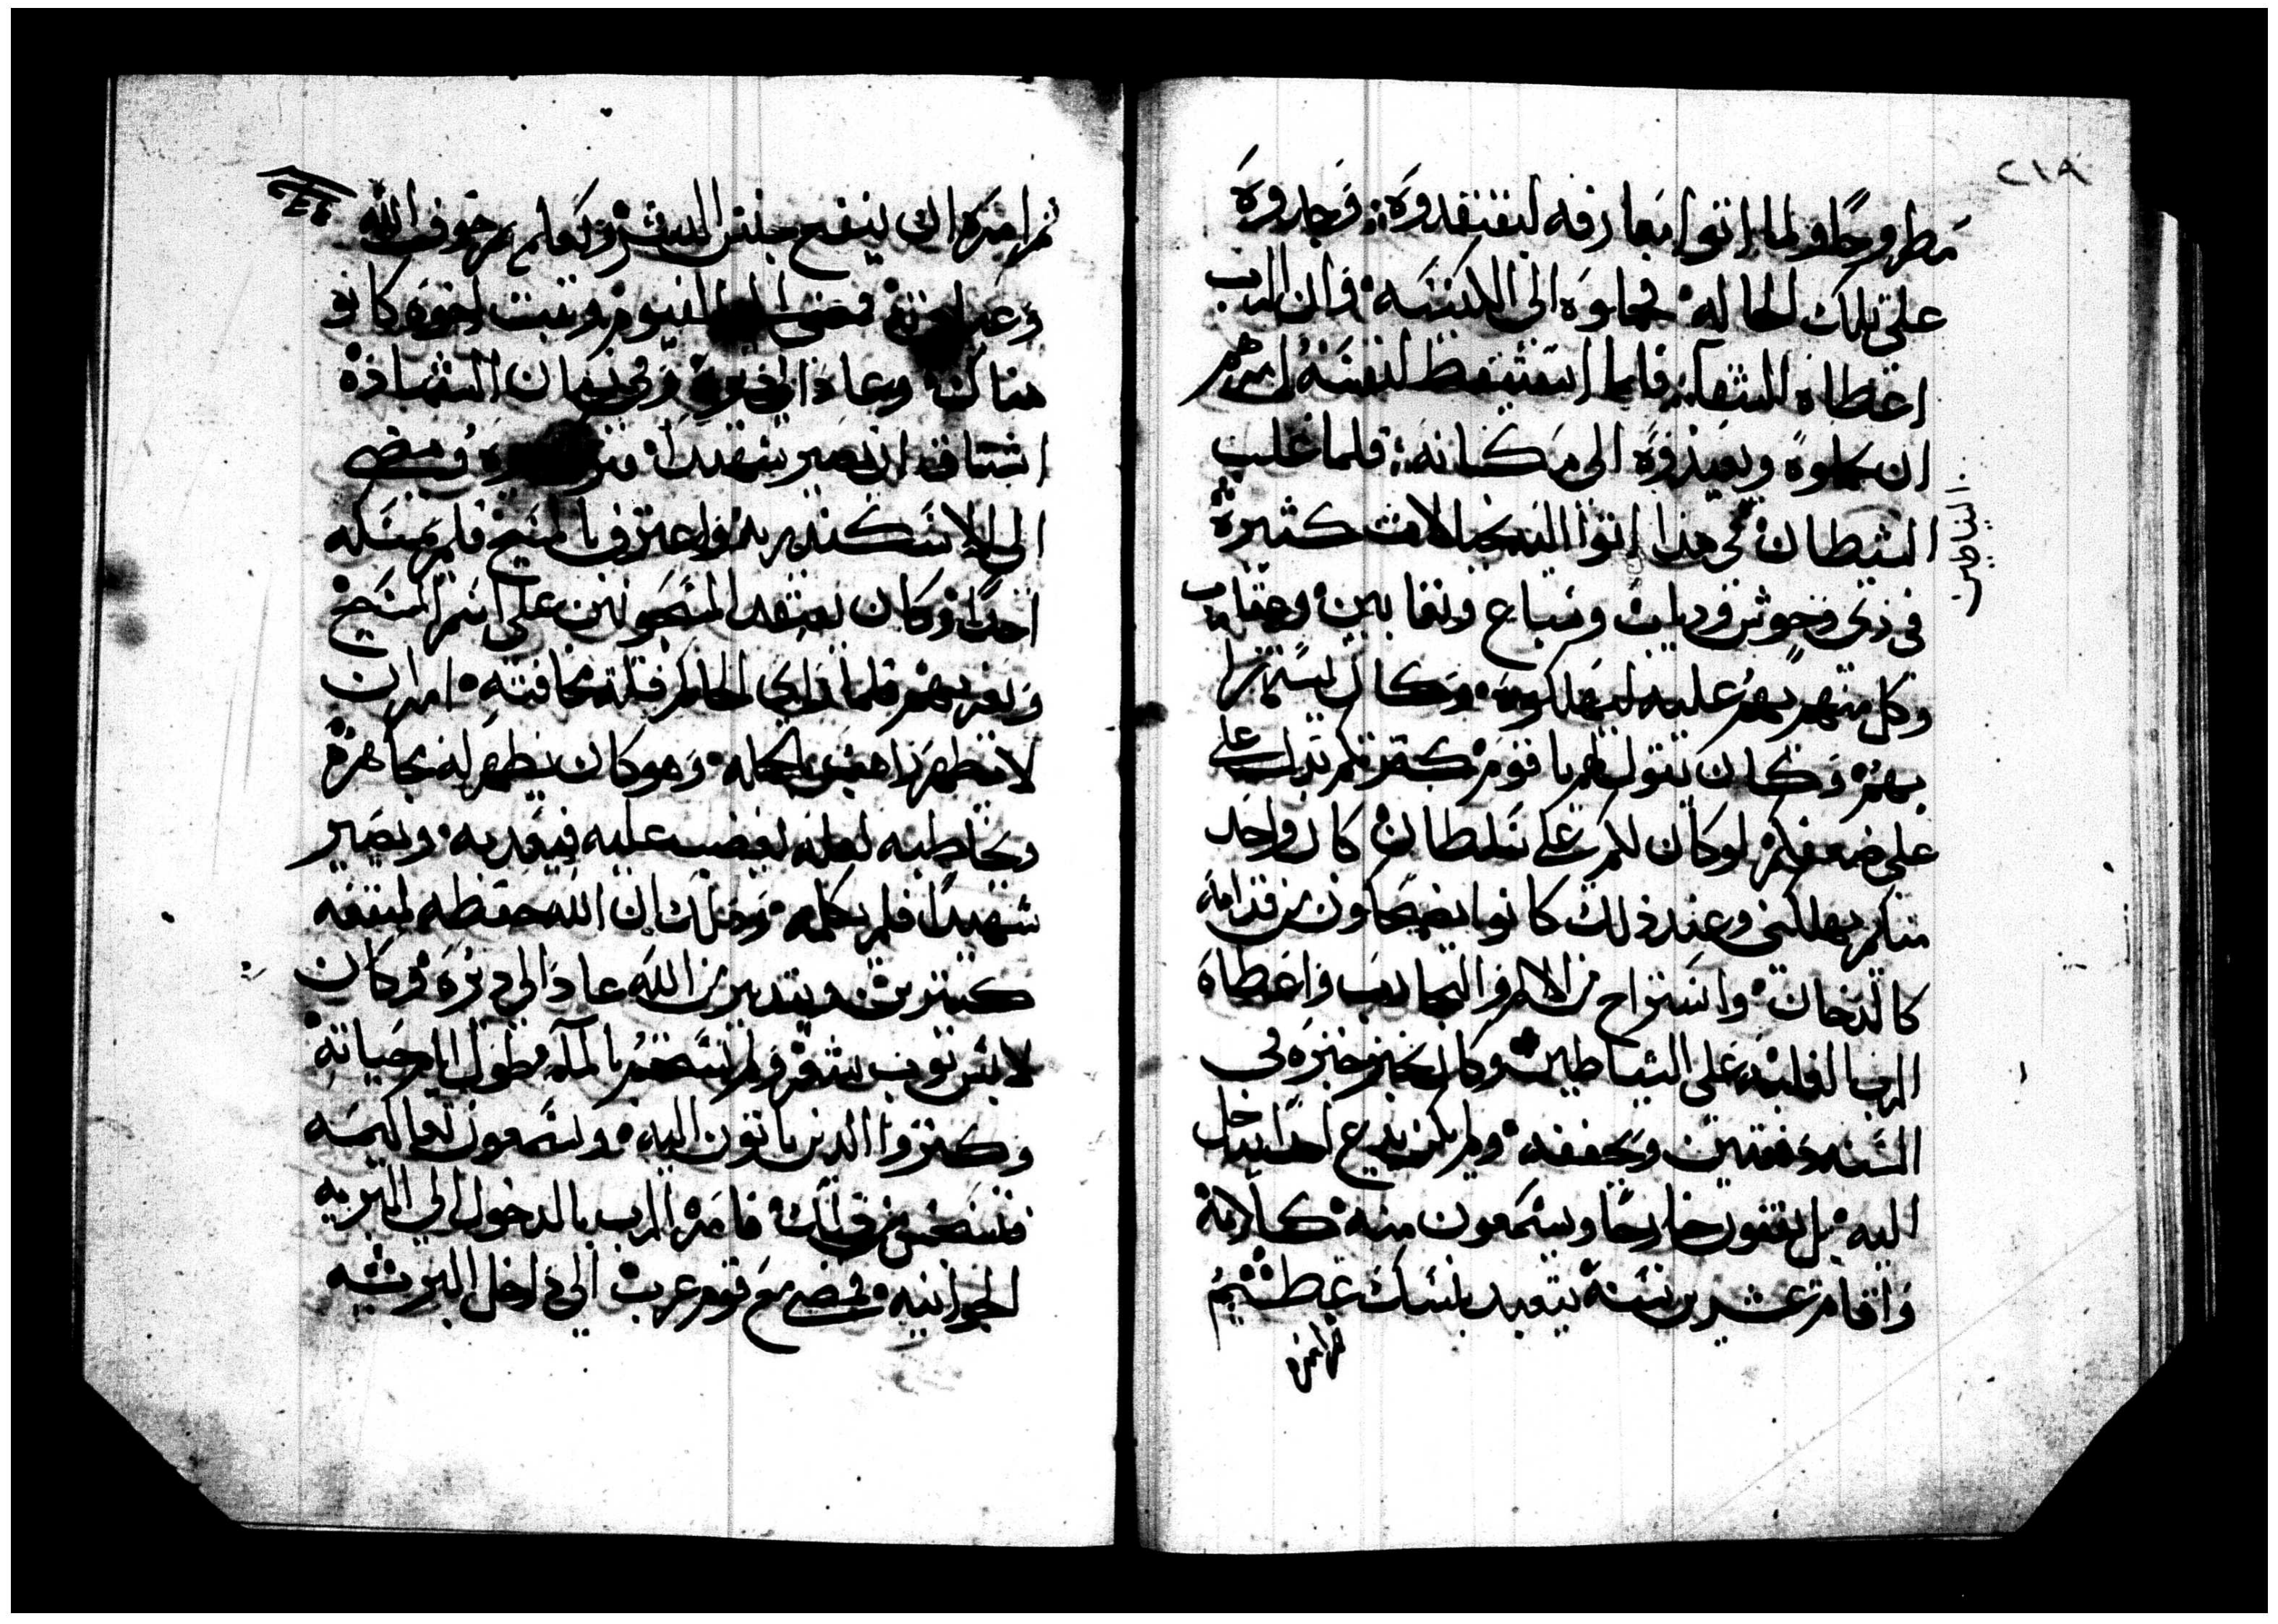 ٢١٨
مطروحًا ولما اتوا معارفه ليفتقدوه فوجدوه
على تلك الحاله فحملوه الى الكنيسه فان الرب
اعطاه الشفا فلما استيقظ لنفسه امرهم
ان يحملوه ويعيدوه الى مكانه فلما غلب
الشيطان في هذا اتوا اليه بخيالات كثيرة
الشياطين
في زي وحوش ودياب وسباع وتعابين وعقارب
وكل منهم يهم عليه ليهلكوه وكان يستهزا
بهم وكان يقول لهم يا قوم كثرتكم تدل على
على ضعفكم لو كان لكم علي سلطان كان واحد
منكم يهلكني وعند ذلك كانوا يضمحلون من قدامه
كالدخان واستراح من الالام والتجارب واعطاه
الرب الغلبه على الشياطين وكان يخبز خبزه في
السنه دفعتين ويجففه ولم يكن يدع احدا يدخل
اليه بل يقفون خارجًا ويسمعون منه كلامة
واقام عشرين سنة يتعبد بنسك عظيم
ثم امره
ثم امره الله ان ينفع جنس البشر ويعلمهم خوف الله
وعبادته فمضى الى الفيوم وثبت اخوه كانو
هناك وعاد الى ديره وفي زمان الشهادة
اشتاق ان يصير شهيدا فترك ديره ومضى
الى الاسكندريه واعترف بالمسيح فلم يمسكه
احدًا وكان يفتقد المسجونين على اسم المسيح
ويعزيهم فلما راي الحاكم قلة مخافته امر ان
لا يظهر راهب بالجمله وهو كان يظهر له مجاهرة
ويخاطبه لعله يغضب عليه فيعذبه ويصير
شهيدًا فلم يكلمه وذلك ان الله حفظه لمنفعه
كثيرين وبتدبير من الله عاد الى ديره وكان
لابس ثوب شعر ولم يستحم بالماء طول ايام حياته
وكتروا الدين ياتون اليه ويسمعون تعاليمه
فسجس من ذلك فامره الرب بالدخول الى البريه
الجوانيه فمضى مع قوم عرب الى داخل البريه